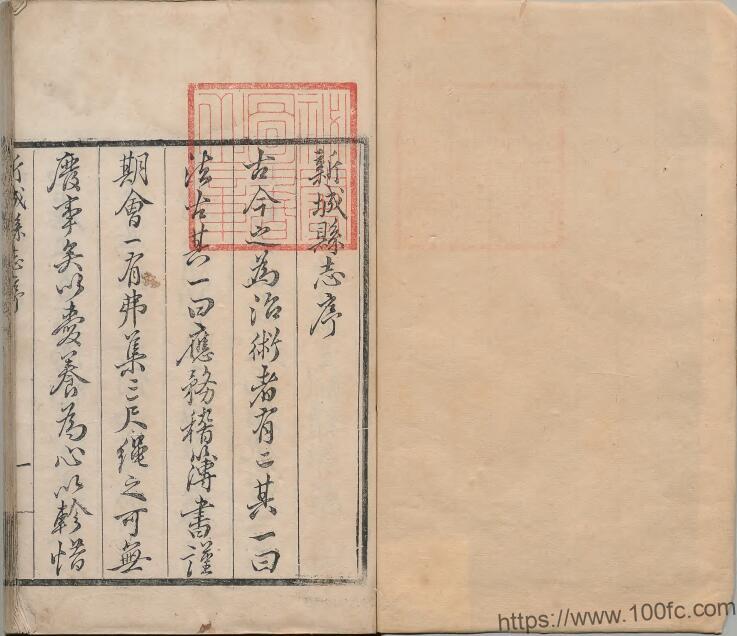 新城縣志序
古今之為治術者有二其一曰
法古其一曰應務稽簿書謹
期會一有弗集三尺繩之可無
廢事矣以愛養為心以軫惜
新城縣志序
一
https://www.100fc.com